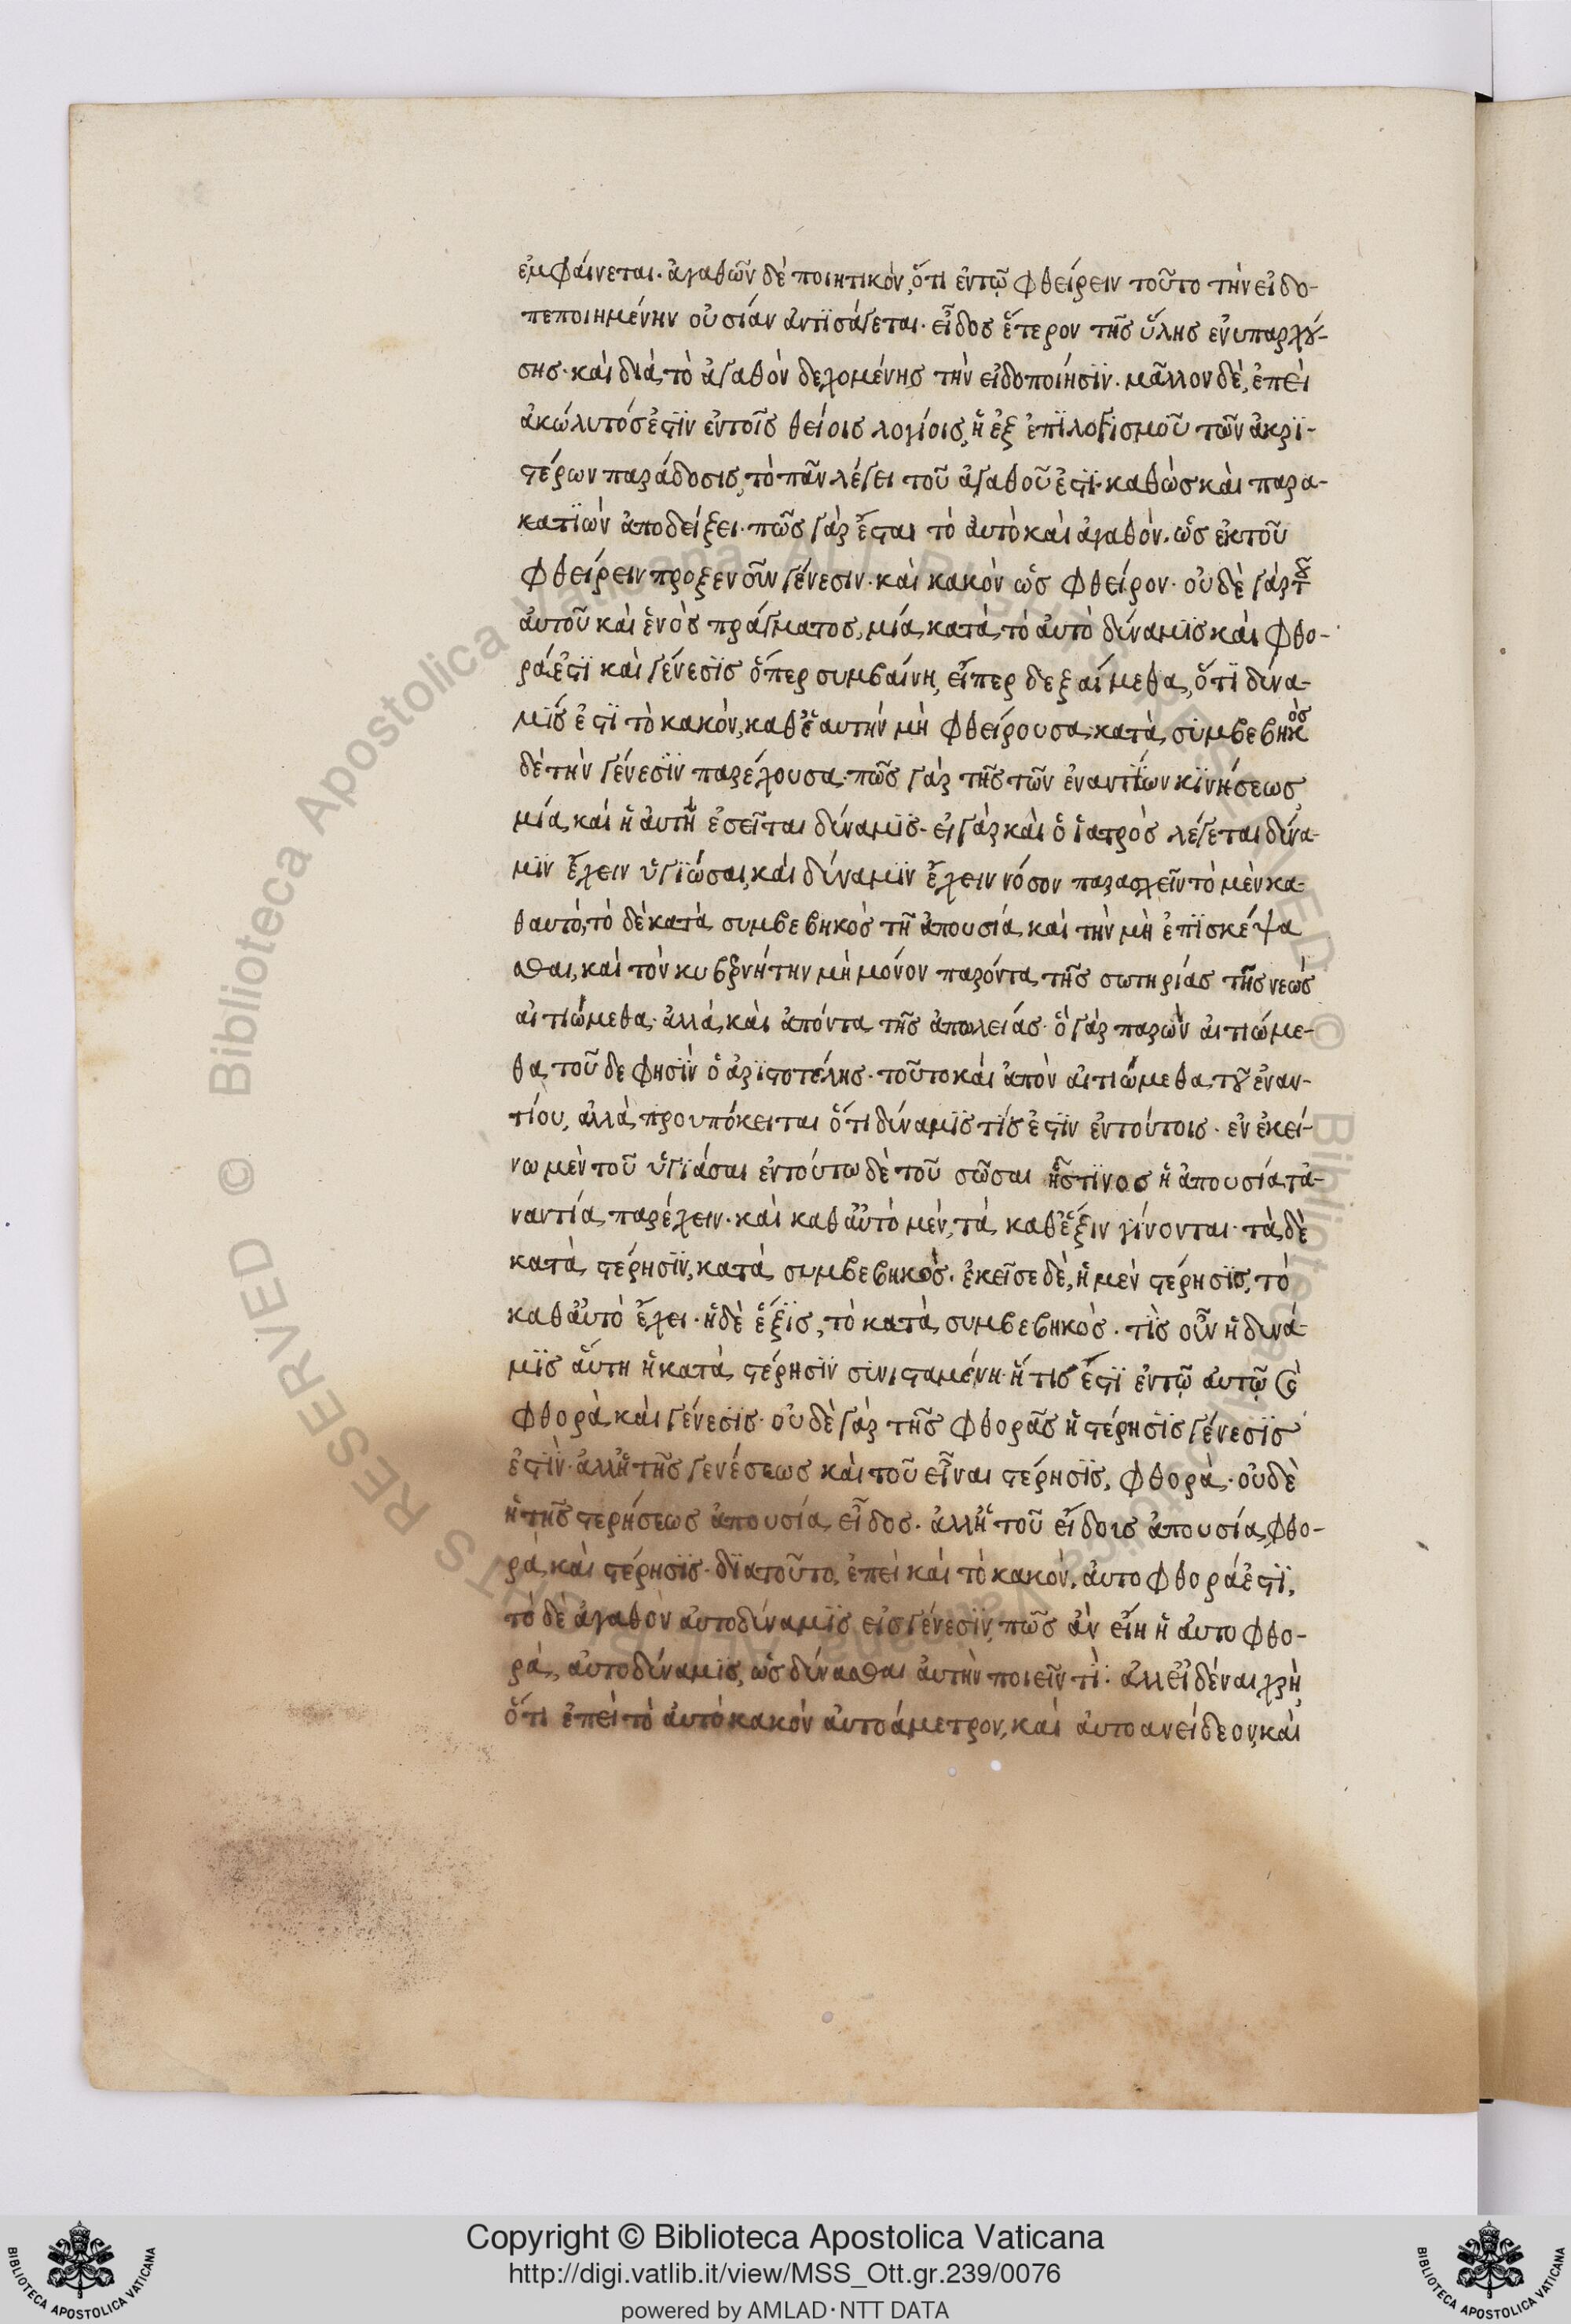 ἐμφαίνεται· ἀγαθῶν δὲ ποιητικὸν, ὅτι ἐν τῷ φθείρειν τοῦτο τὴν εἰδο-
πεποιημένην οὐσίαν ἀντϊσάγεται· εἶδος ἕτερον τῆς ὕλης ἐνυπαρχού-
σης· καὶ διὰ τὸ ἀγαθὸν δεχομένης τὴν εἰδοποίησϊν. μᾶλλον δὲ, ἐπεὶ
ἀκώλυτός ἐστϊν ἐν τοῖς θείοις λογίοις, ἢ ἐξ ἐπϊλογισμοῦ τῶν ἀκρϊ-
στέρων παράδοσις, τὸ πᾶν λέγει τοῦ ἀγαθοῦ ἐστϊ· καθὼς καὶ παρα-
κατϊὼν ἀποδείξει· πῶς γὰρ ἔσται τὸ ἀυτὸ καὶ ἀγαθὸν. ὡς ἐκ τοῦ
φθείρειν προξενοῦν γένεσιν· καὶ κακὸν ὡς φθείρον· οὐδὲ γὰρ τοῦ
ἀυτοῦ καὶ ἑνὸς πράγματος, μία κατὰ τὸ ἀυτὸ δύναμϊς καὶ φθο-
ρά ἐστϊ καὶ γένεσϊς ὅπερ συμβαίνη, εἴπερ δεξαίμεθα, ὅτϊ δύνα-
μϊς ἐστϊ τὸ κακὸν, καθ' ἑαυτὴν μὴ φθείρουσα, κατὰ συμβεβηκὸς
δὲ τὴν γένεσϊν παρέχουσα· πῶς γὰρ τῆς τῶν ἐναντϊων κϊνήσεως
μία, καὶ ἡ ἀυτὴ ἐσεῖται δύναμϊς· εἰ γὰρ καὶ ὁ ἰατρὸς λέγεται δύνα-
μϊν ἔχειν ὑγϊῶσαι, καὶ δύναμϊν ἔχειν νόσον παρασχεῖν τὸ μὲν κα-
θαυτὸ, τὸ δὲ κατὰ συμβεβηκὸς τῇ ἀπουσία καὶ τὴν μὴ ἐπϊσκέψα
σθαι, καὶ τὸν κυβερνήτην μὴ μόνον παρόντα τῆς σωτηρίας τῆς νεὼς
αἰτιώμεθα· ἀλλὰ καὶ ἀπόντα τῆς ἀπωλείας· ὁ γὰρ παρὼν αἰτιώμε-
θα, τοῦδε φησϊν ὁ ἀρϊστοτέλης· τοῦτο καὶ ἀπὸν αἰτιώμεθα τοῦ ἐναν-
τίου, ἀλλὰ προυπόκειται ὅτι δύναμϊς τίς ἐστϊν ἐν τούτοις· ἐν ἐκεί-
νω μὲν τοῦ ὑγϊάσαι ἐν τούτω δὲ τοῦ σῶσαι ἧστϊνος ἡ ἀπουσία τὰ-
ναντία παρέχειν· καὶ καθ' ἀυτὸ μὲν, τὰ καθ' ἕξιν γίνονται· τὰ δὲ
κατὰ στέρησϊν, κατὰ συμβεβηκὸς· ἐκεῖσε δὲ, ἡ μὲν στέρησϊς, τὸ
καθ' ἀυτὸ ἔχει· ἡ δὲ ἕξϊς, τὸ κατὰ συμβεβηκὸς· τὶς οὖν ἡ δυνά-
μϊς ἅυτη ἡ κατὰ στέρησϊν συνισταμένη· ἥτις ἐστϊ ἐν τῷ ἀυτῷ καὶ
φθορὰ καὶ γένεσϊς· οὐδὲ γὰρ τῆς φθορᾶς ἡ στέρησϊς γένεσϊς
ἐστϊν· ἀλλ' ἡ τῆς γενέσεως καὶ τοῦ εἶναι στέρησϊς, φθορὰ· οὐδὲ
ἡ τῆς στερήσεως ἀπουσία εἶδος· ἀλλ' ἡ τοῦ εἴδους ἀπουσία, φθο-
ρὰ καὶ στέρησϊς· δϊατοῦτο, ἐπεὶ καὶ τὸ κακὸν, ἀυτοφθορά ἐστϊ,
τὸ δὲ ἀγαθὸν ἀυτοδύναμϊς εἰς γένεσϊν, πῶς ἀν εἴη ἡ ἀυτοφθο-
ρὰ, ἀυτοδύναμϊς, ὡς δύνασθαι ἀυτὴν ποιεῖν τϊ· ἀλλ' εἰδέναι χρὴ
ὅτι ἐπεὶ τὸ ἀυτόκακὸν ἀυτοάμετρον, καὶ ἀυτοανείδεον, καὶ
Copyright © Biblioteca Apostolica Vaticana
http://digi.vatlib.it/view/MSS_Ott.gr.239/0076
powered by AMLAD·NTT DATA